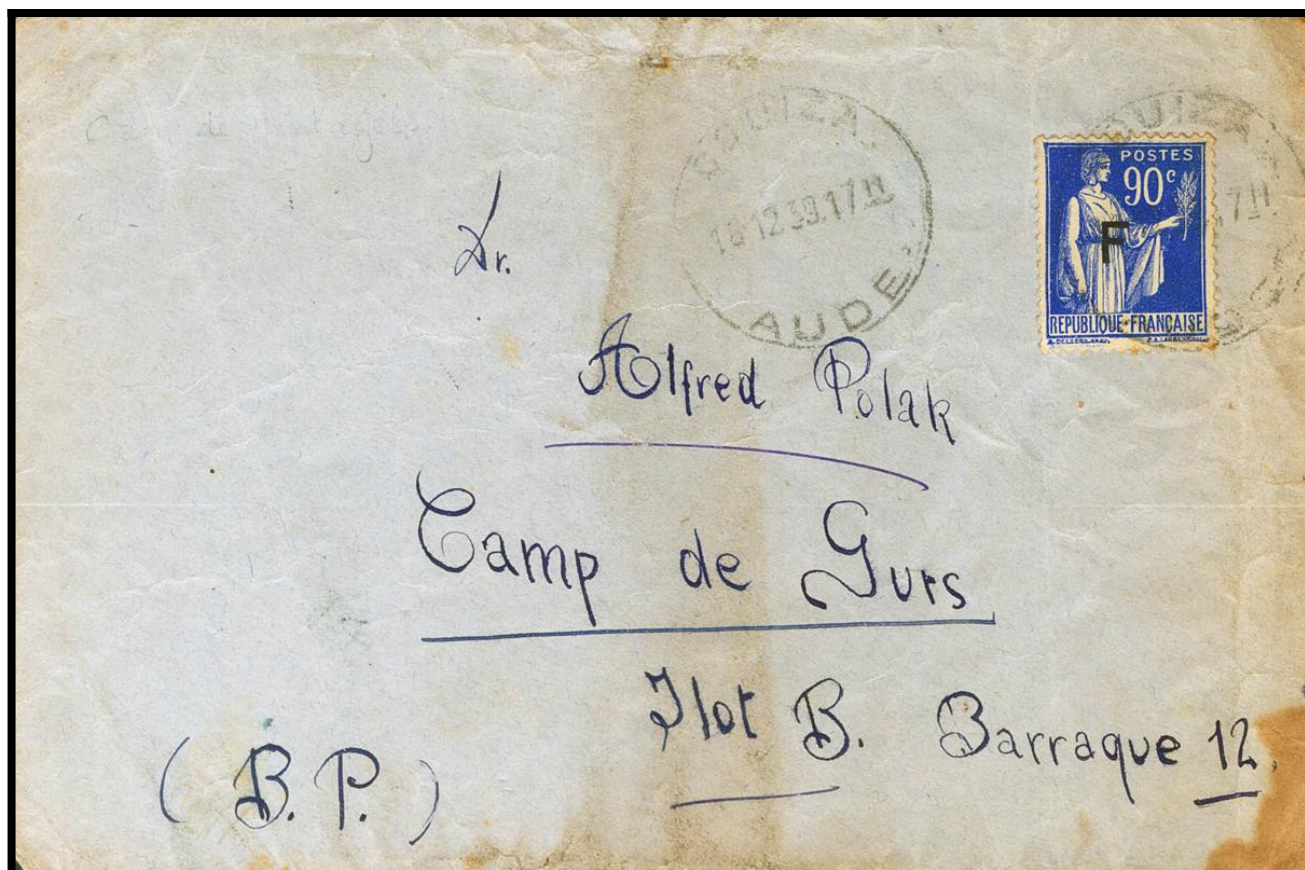 AUDE.
POSTES
90c
F
REPUBLIQUE-FRANÇAISE
Dr.
Alfred Polak
Camp de Gurs
Ilot B. Barraque 12.
(B.P.)